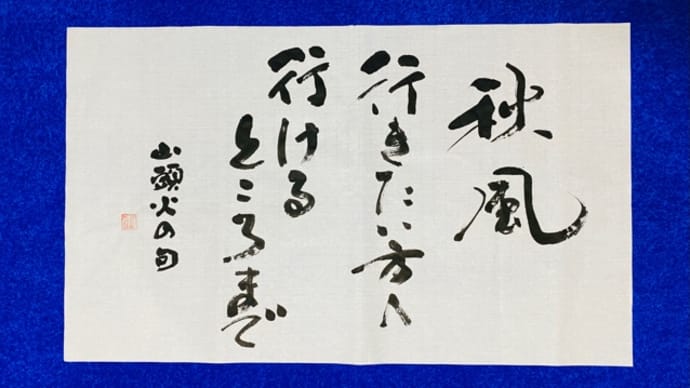 秋風
行きたい方へ
行ける
ところまで
山頭火の句